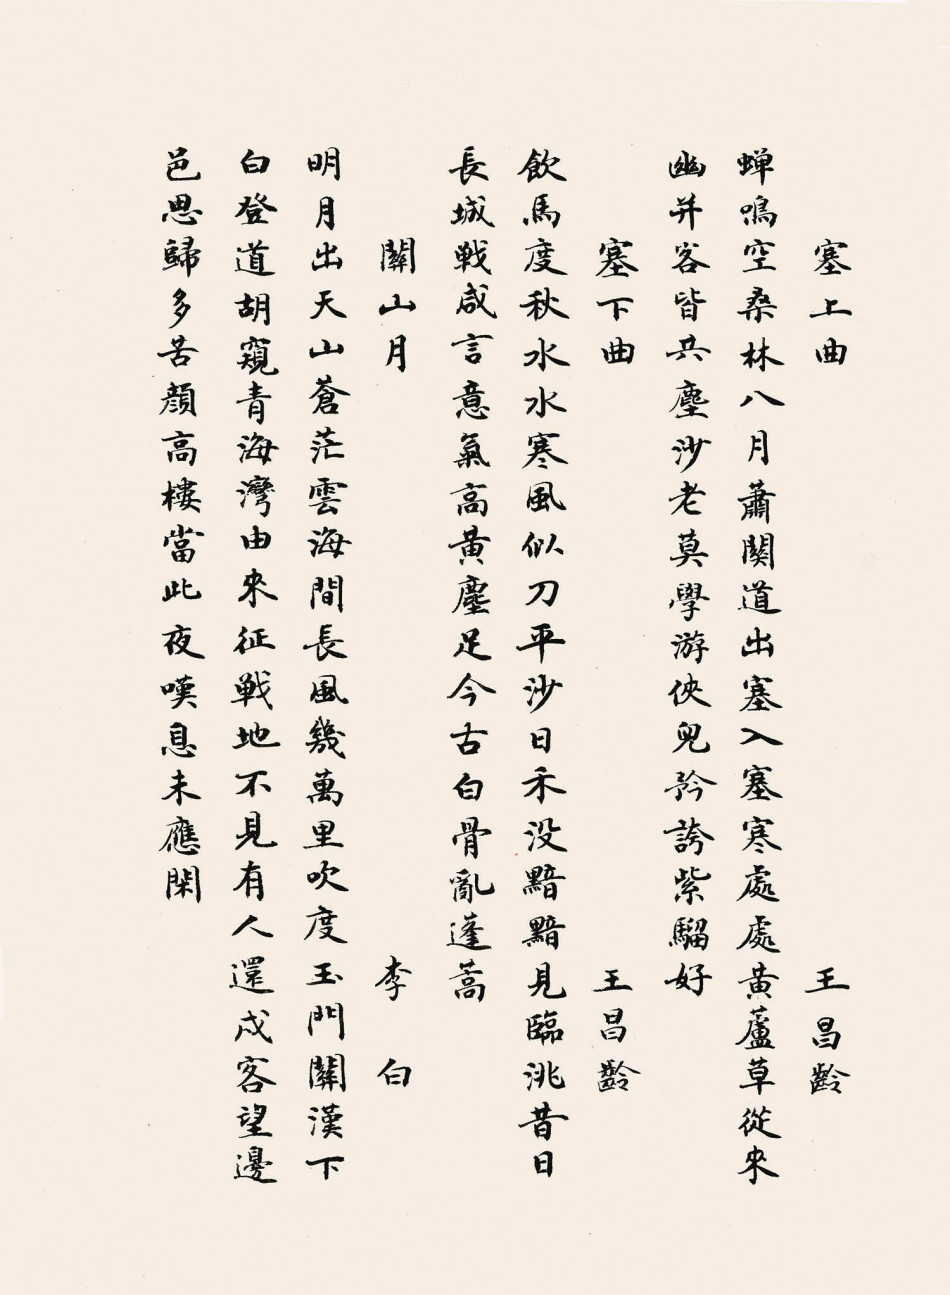 塞上曲 王昌齡
蝉鳴空桑林八月蕭関道出塞入塞寒處處黃蘆草從來
幽并客皆共塵沙老莫學游俠兒矜誇紫騮好
塞下曲 王昌齡
飲馬度秋水水寒風似刀平沙日未没黯黯見臨洮昔日
長城戦咸言意氣高黃塵足今古白骨亂蓬蒿
關山月 李白
明月出天山蒼茫雲海間長風幾萬里吹度玉門關漢下
白登道胡窺青海灣由來征戦地不見有人還戍客望邊
邑思歸多苦顔高樓當此夜嘆息未應閑